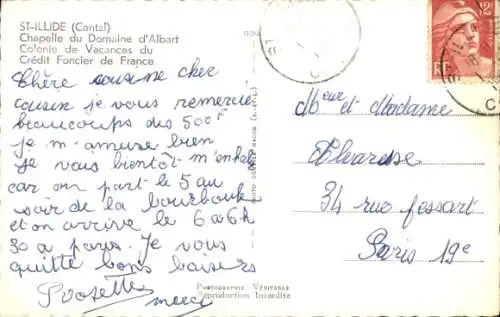 ST-ILLIDE (Cantal)
Chapelle du Domaine d'Albart
Colonie de Vacances du
Crédit Foncier de France
Chère cousine cher
cousin je vous remercie
beaucoups des 500F
je m'amuse bien
je vous bientôt m'en
car on part le 5 au
soir de la bourboule
et on arrive le 6 a 6h
30 a paris. Je vous
quitte bons baisers
Prosette
merci
Meur et Madame
Alvarese
34 rue fessart
Paris 19e
PHOTOGRAPHIE VÉRITABLE
Reproduction Interdite
RF